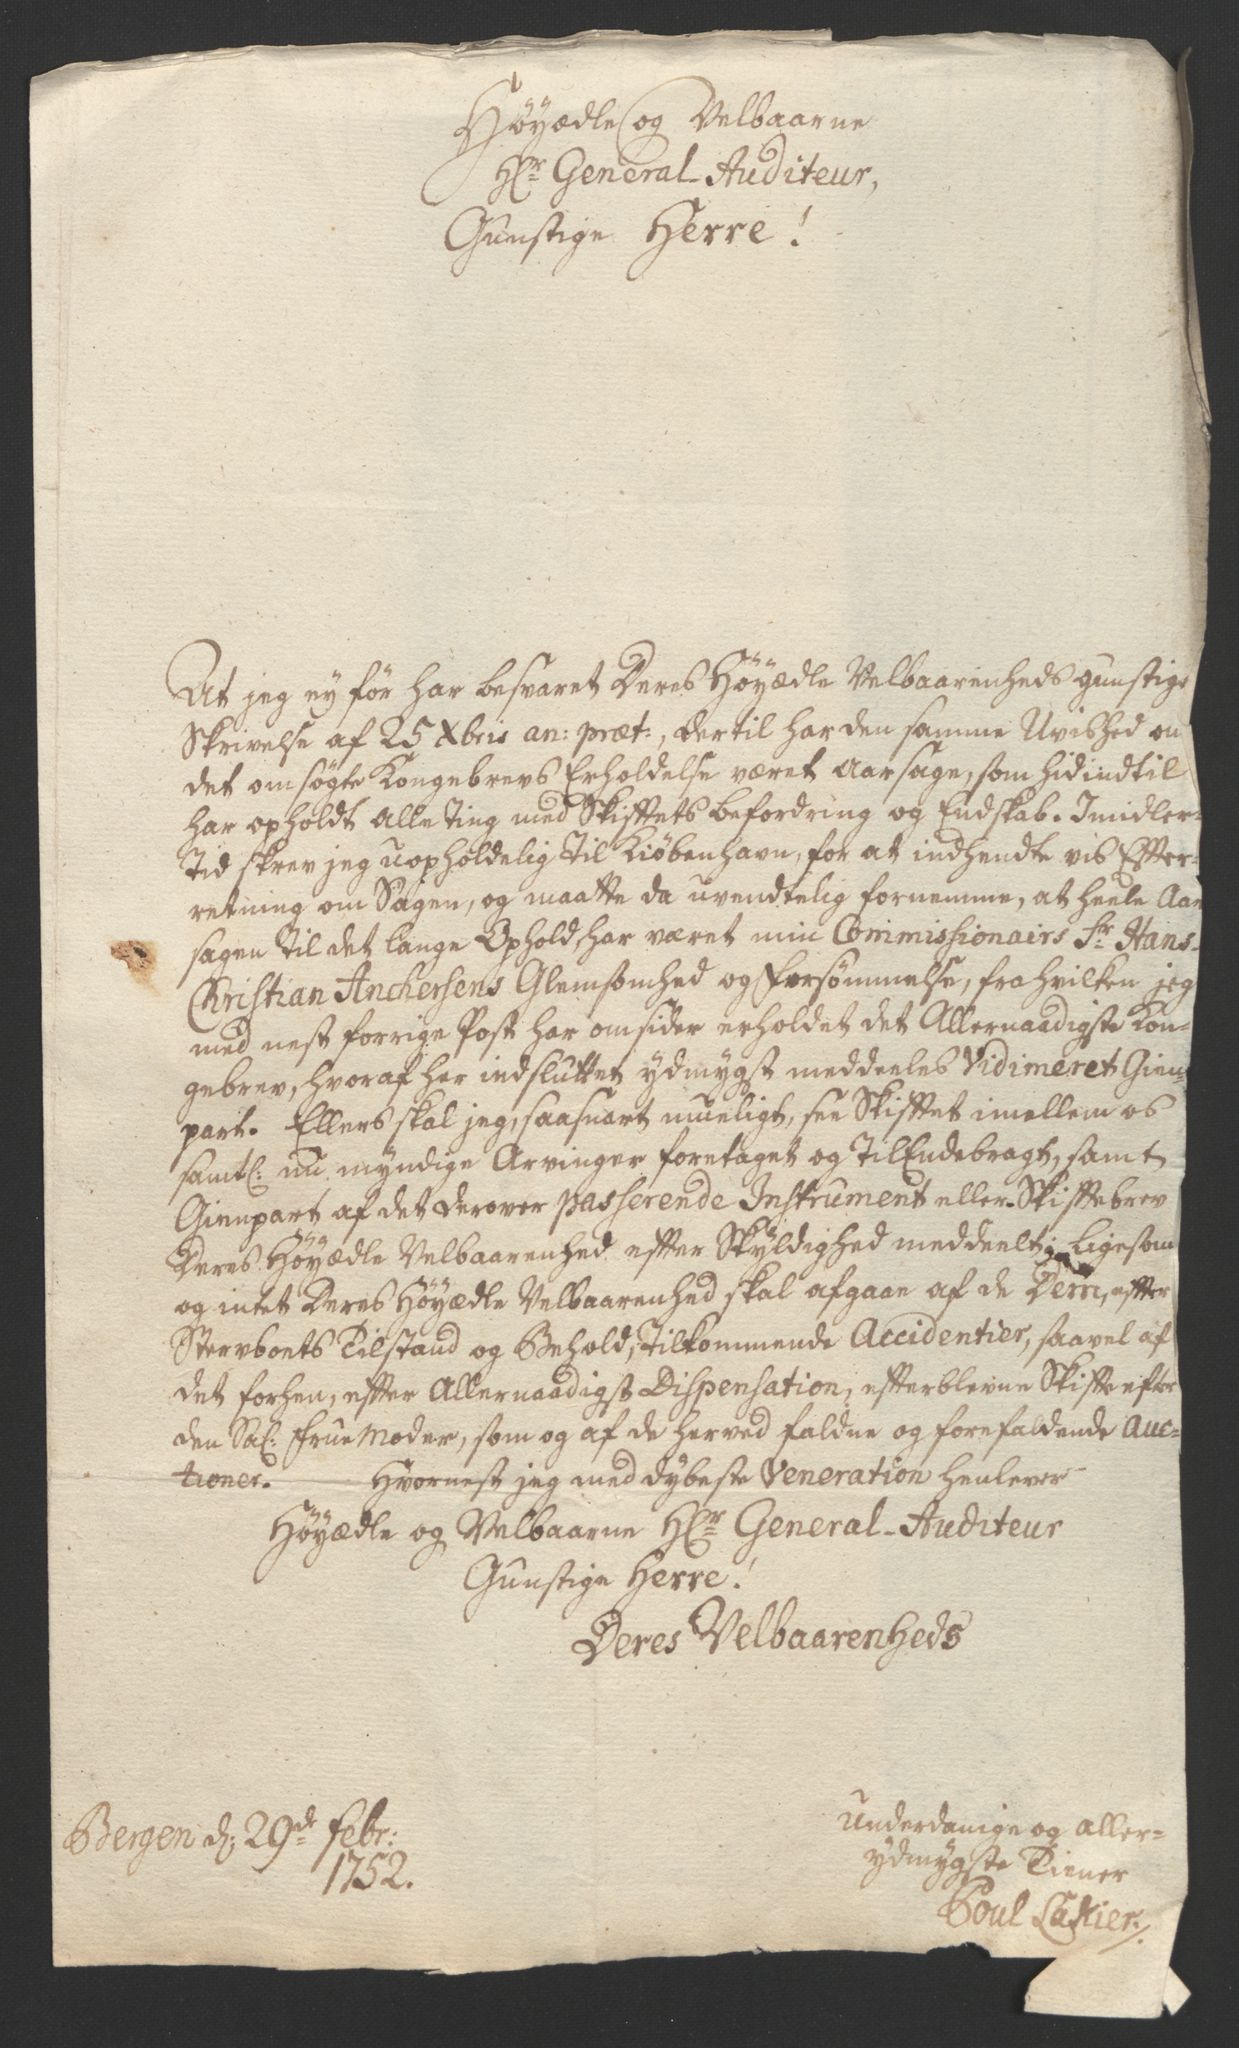 Höyædle og Velbaarne
Hr General-Auditeur,
Gunstige Herre!
At jeg ey för har besvaret Deres Höyædle Velbaarenheds gunstige
Skrivelse af 25 Xbris an: præt:, dertil har den samme Uvished om
det omsögte Kongebrevs Erholdelse været Aarsage, som hidindtil
har opholdt alle Ting med Skifftets befordring og Endskab. Imidler-
Tid skrev jeg uopholdelig til Kiöbenhavn, for at indhendte vis Effter-
retning om Sagen, og maatte da uvendtelig fornemme, at heele Aar-
sagen til det lange Ophold, har været min Commissionairs Sr Hans
Christian Anchersens Glemsomhed og Forsömmelse, fra hvilken jeg
med nest forrige Post har omsider erholdet det Allernaadigste Kon-
gebrev, hvoraf her indsluttet ydmygst meddeeles Vidimeret Gien-
part. Ellers skal jeg, saasnart mueligt, see Skifftet imellem os
samtl: nu myndige Arvinger foretaget og tilEndebragt, samt
Gienpart af det derover passerende Instrument eller Skifftebrev
Deres Höyædle Velbaarenhed effter Skyldighed meddeelt; Ligesom
og intet Deres Höyædle Velbaarenhed skal afgaae af de Dem, effter
Stervboets Tilstand og Behold, tilkommende Accidentier, saavel af
det forhen, effter Allernaadigst Dispensation, efterblevne Skiffte efter
den Sal: Frue Moder, som og af de herved faldne og forefaldende Auc-
tioner. Hvornest jeg med dybeste Veneration henlever
Höyædle og Velbaarne Hr General-Auditeur
Gunstige Herre!
Deres Velbaarenheds
Bergen d: 29de febr:
1752.
underdanige og aller-
ydmygste Tiener
Poul